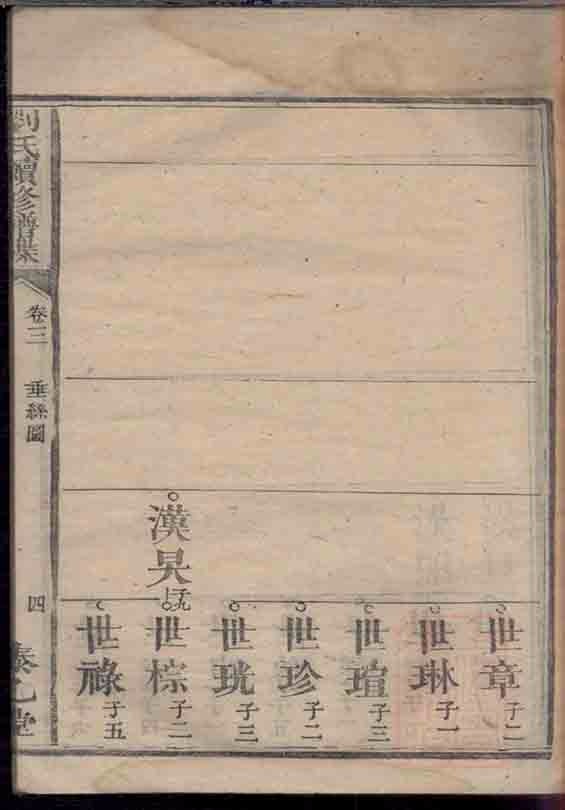 世章 子二
世琳 子一
世瑄 子三
世珍 子二
世珖 子三
漢昊
世棕 子二
世祿 子五
劉氏續修譜牒
卷三 垂絲圖
四
泰乙堂